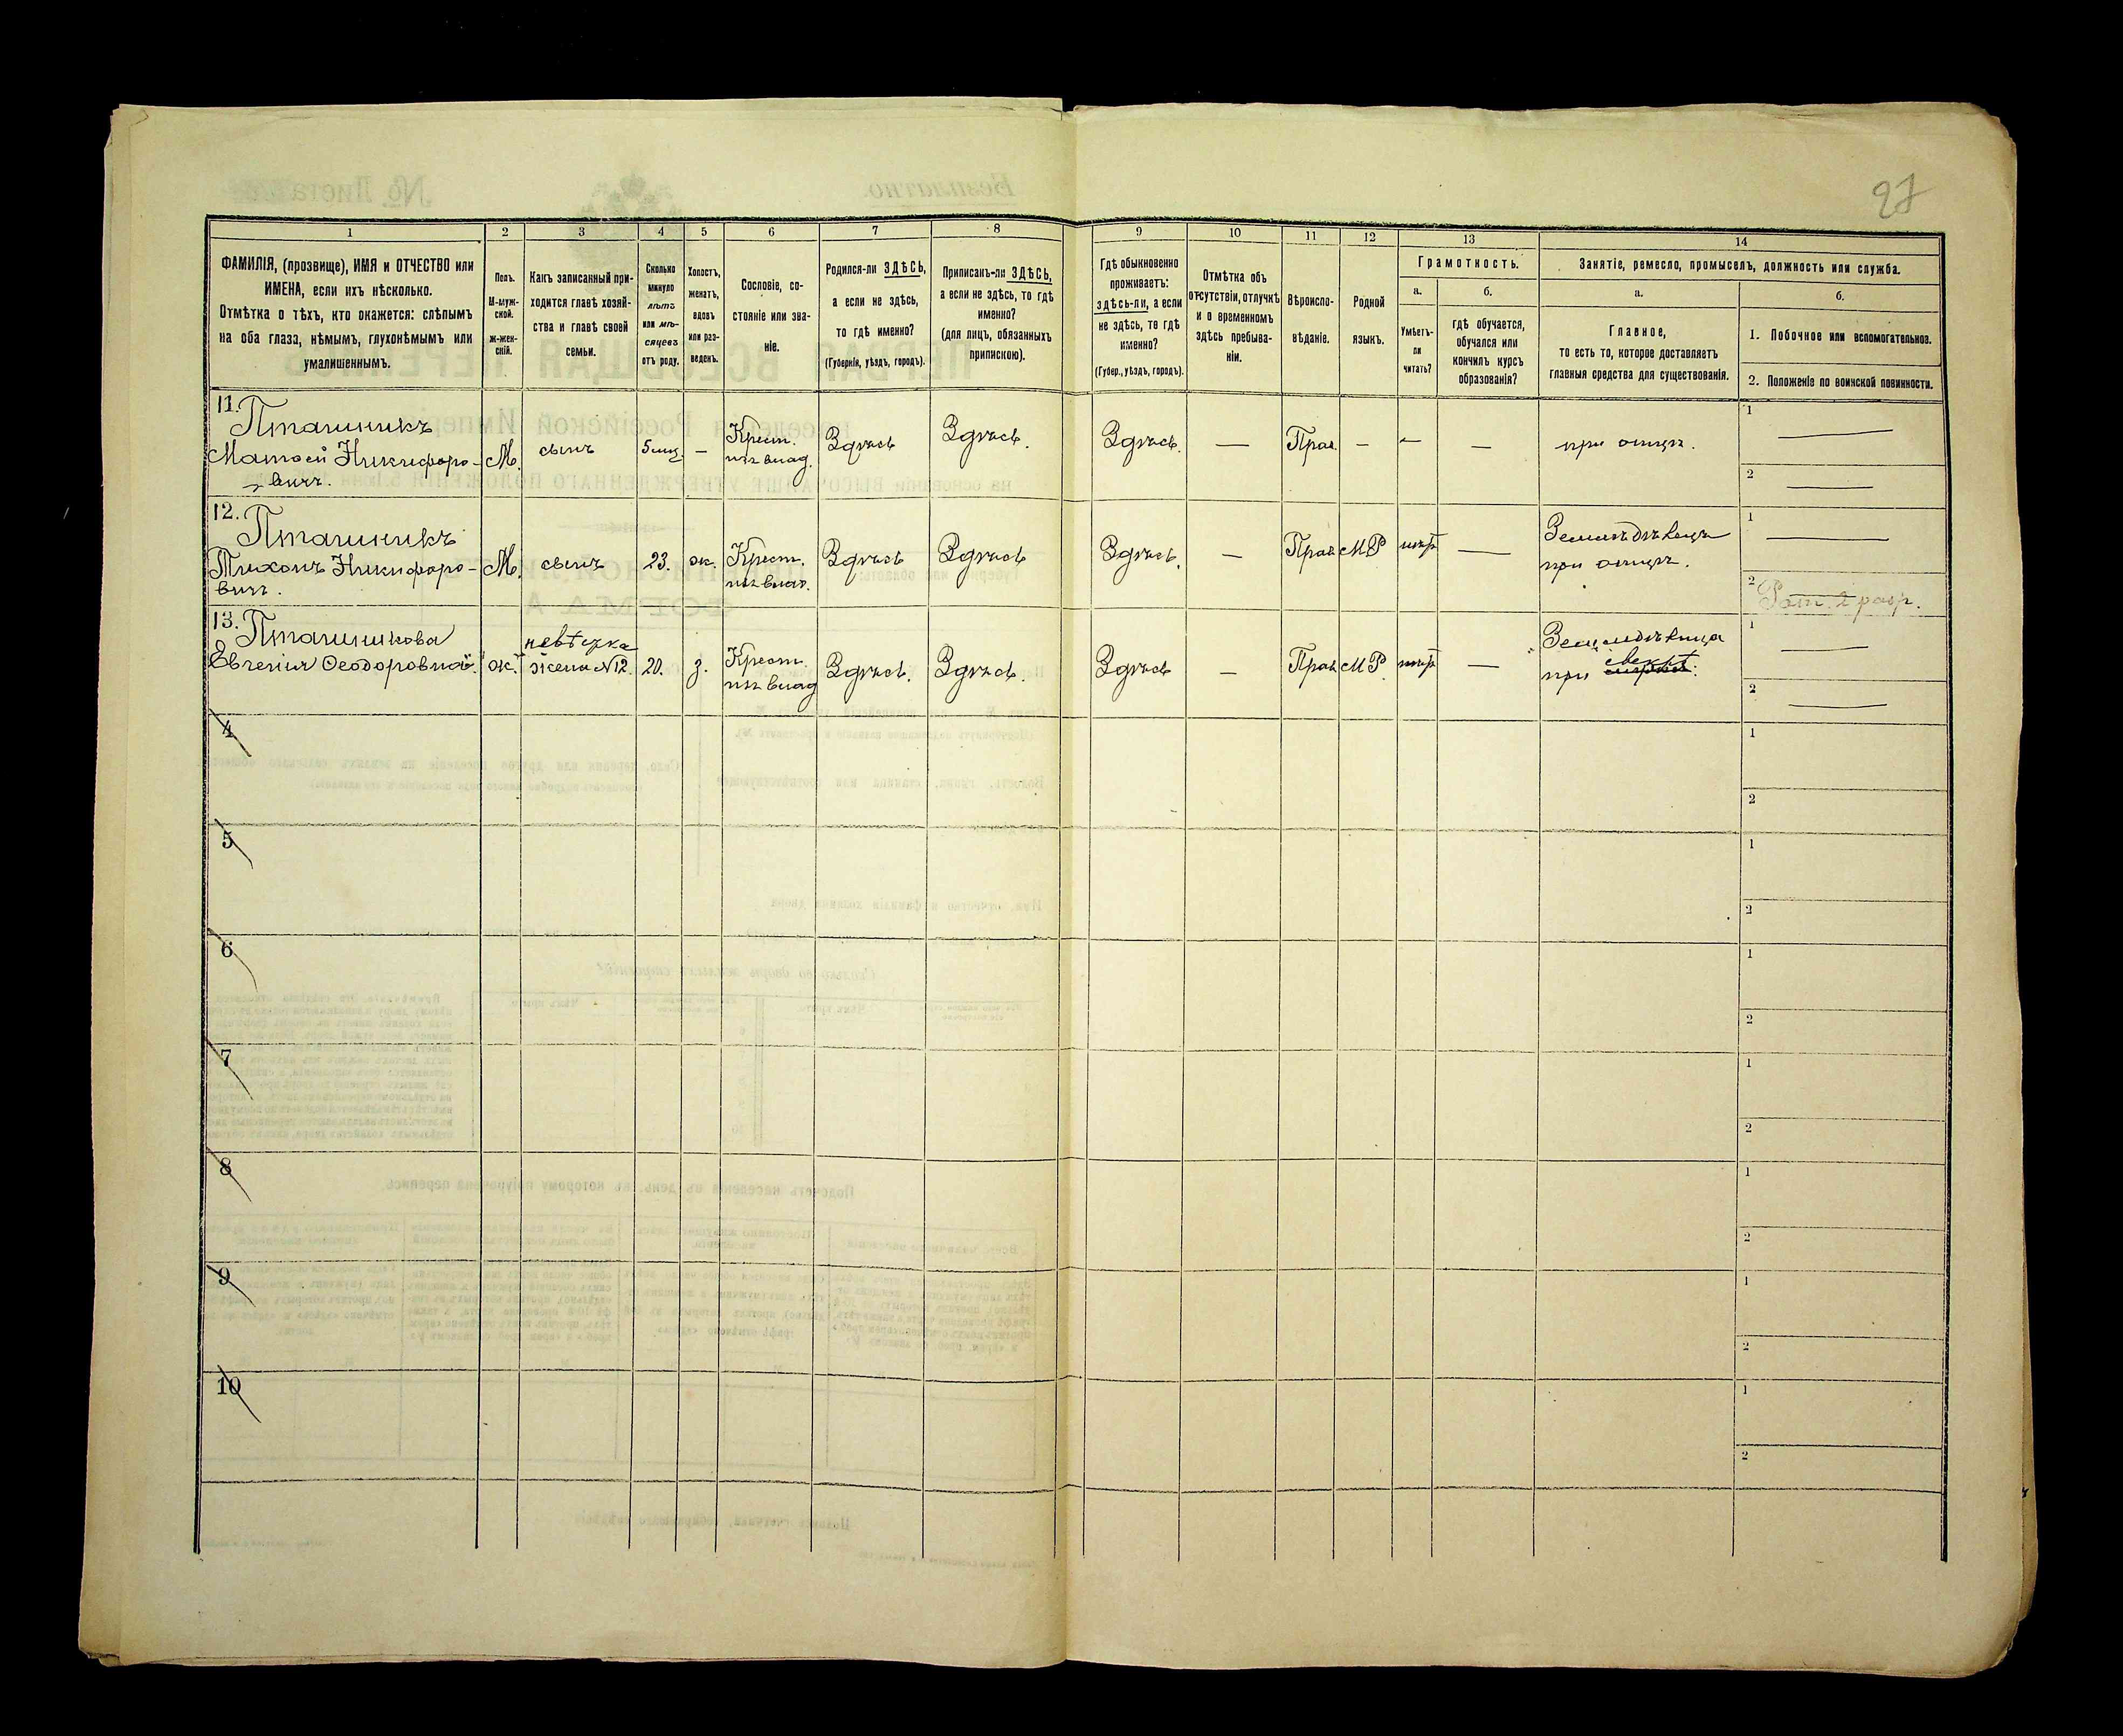 97
1
2
3
4
5
6
7
8
9
10
11
12
13
14
ФАМИЛІЯ, (прозвище), ИМЯ и ОТЧЕСТВО или
ИМЕНА, если ихъ нѣсколько.
Отмѣтка о тѣхъ, кто окажется: слѣпымъ
на оба глаза, нѣмымъ, глухонѣмымъ или
умалишеннымъ.
Полъ.
М-муж-
ской.
ж-жен-
скій.
Какъ записанный при-
ходится главѣ хозяй-
ства и главѣ своей
семьи.
Сколько
минуло
лѣтъ
или мѣ-
сяцевъ
отъ роду.
Холостъ,
женатъ,
вдовъ
или раз-
веденъ.
Сословіе, со-
стояніе или зва-
ніе.
Родился-ли ЗДѢСЬ,
а если не здѣсь,
то гдѣ именно?
(Губернія, уѣздъ, городъ).
Приписанъ-ли ЗДѢСЬ,
а если не здѣсь, то гдѣ
именно?
(для лицъ, обязанныхъ
припискою).
Гдѣ обыкновенно
проживаетъ:
здѣсь-ли, а если
не здѣсь, то гдѣ
именно?
(Губер., уѣздъ, городъ).
Отмѣтка объ
отсутствіи, отлучкѣ
и о временномъ
здѣсь пребыва-
ніи.
Вѣроиспо-
вѣданіе.
Родной
языкъ.
Грамотность.
а.
Умѣетъ-
ли
читать?
б.
гдѣ обучается,
обучался или
кончилъ курсъ
образованія?
Занятіе, ремесло, промыселъ, должность или служба.
а.
Главное,
то есть то, которое доставляетъ
главныя средства для существованія.
б.
1. Побочное или вспомогательное.
2. Положеніе по воинской повинности.
11.
Пташникъ
Матѳей Никифоро-
вичъ.
М.
сынъ
5 мѣс.
—
Крест.
из влад.
Здѣсь
Здѣсь.
Здѣсь.
—
Прав.
—
—
—
при отцѣ.
1
2
12.
Пташникъ
Тихонъ Никифоро-
вичъ.
М.
сынъ
23.
ж.
Крест.
из влад.
Здѣсь
Здѣсь
Здѣсь.
—
Прав.
МР
нѣт
—
Земледѣлецъ
при отцѣ.
1
2 Рат. 2 разр.
13.
Пташникова
Евгенія Ѳеодоровна.
ж.
невѣстка
жена N12.
20.
з.
Крест.
из влад
Здѣсь.
Здѣсь.
Здѣсь
—
Прав.
МР.
нѣт
—
Земледѣлица
при свекрѣ.
1
2
4
1
2
5
1
2
6
1
2
7
1
2
8
1
2
9
1
2
10
1
2